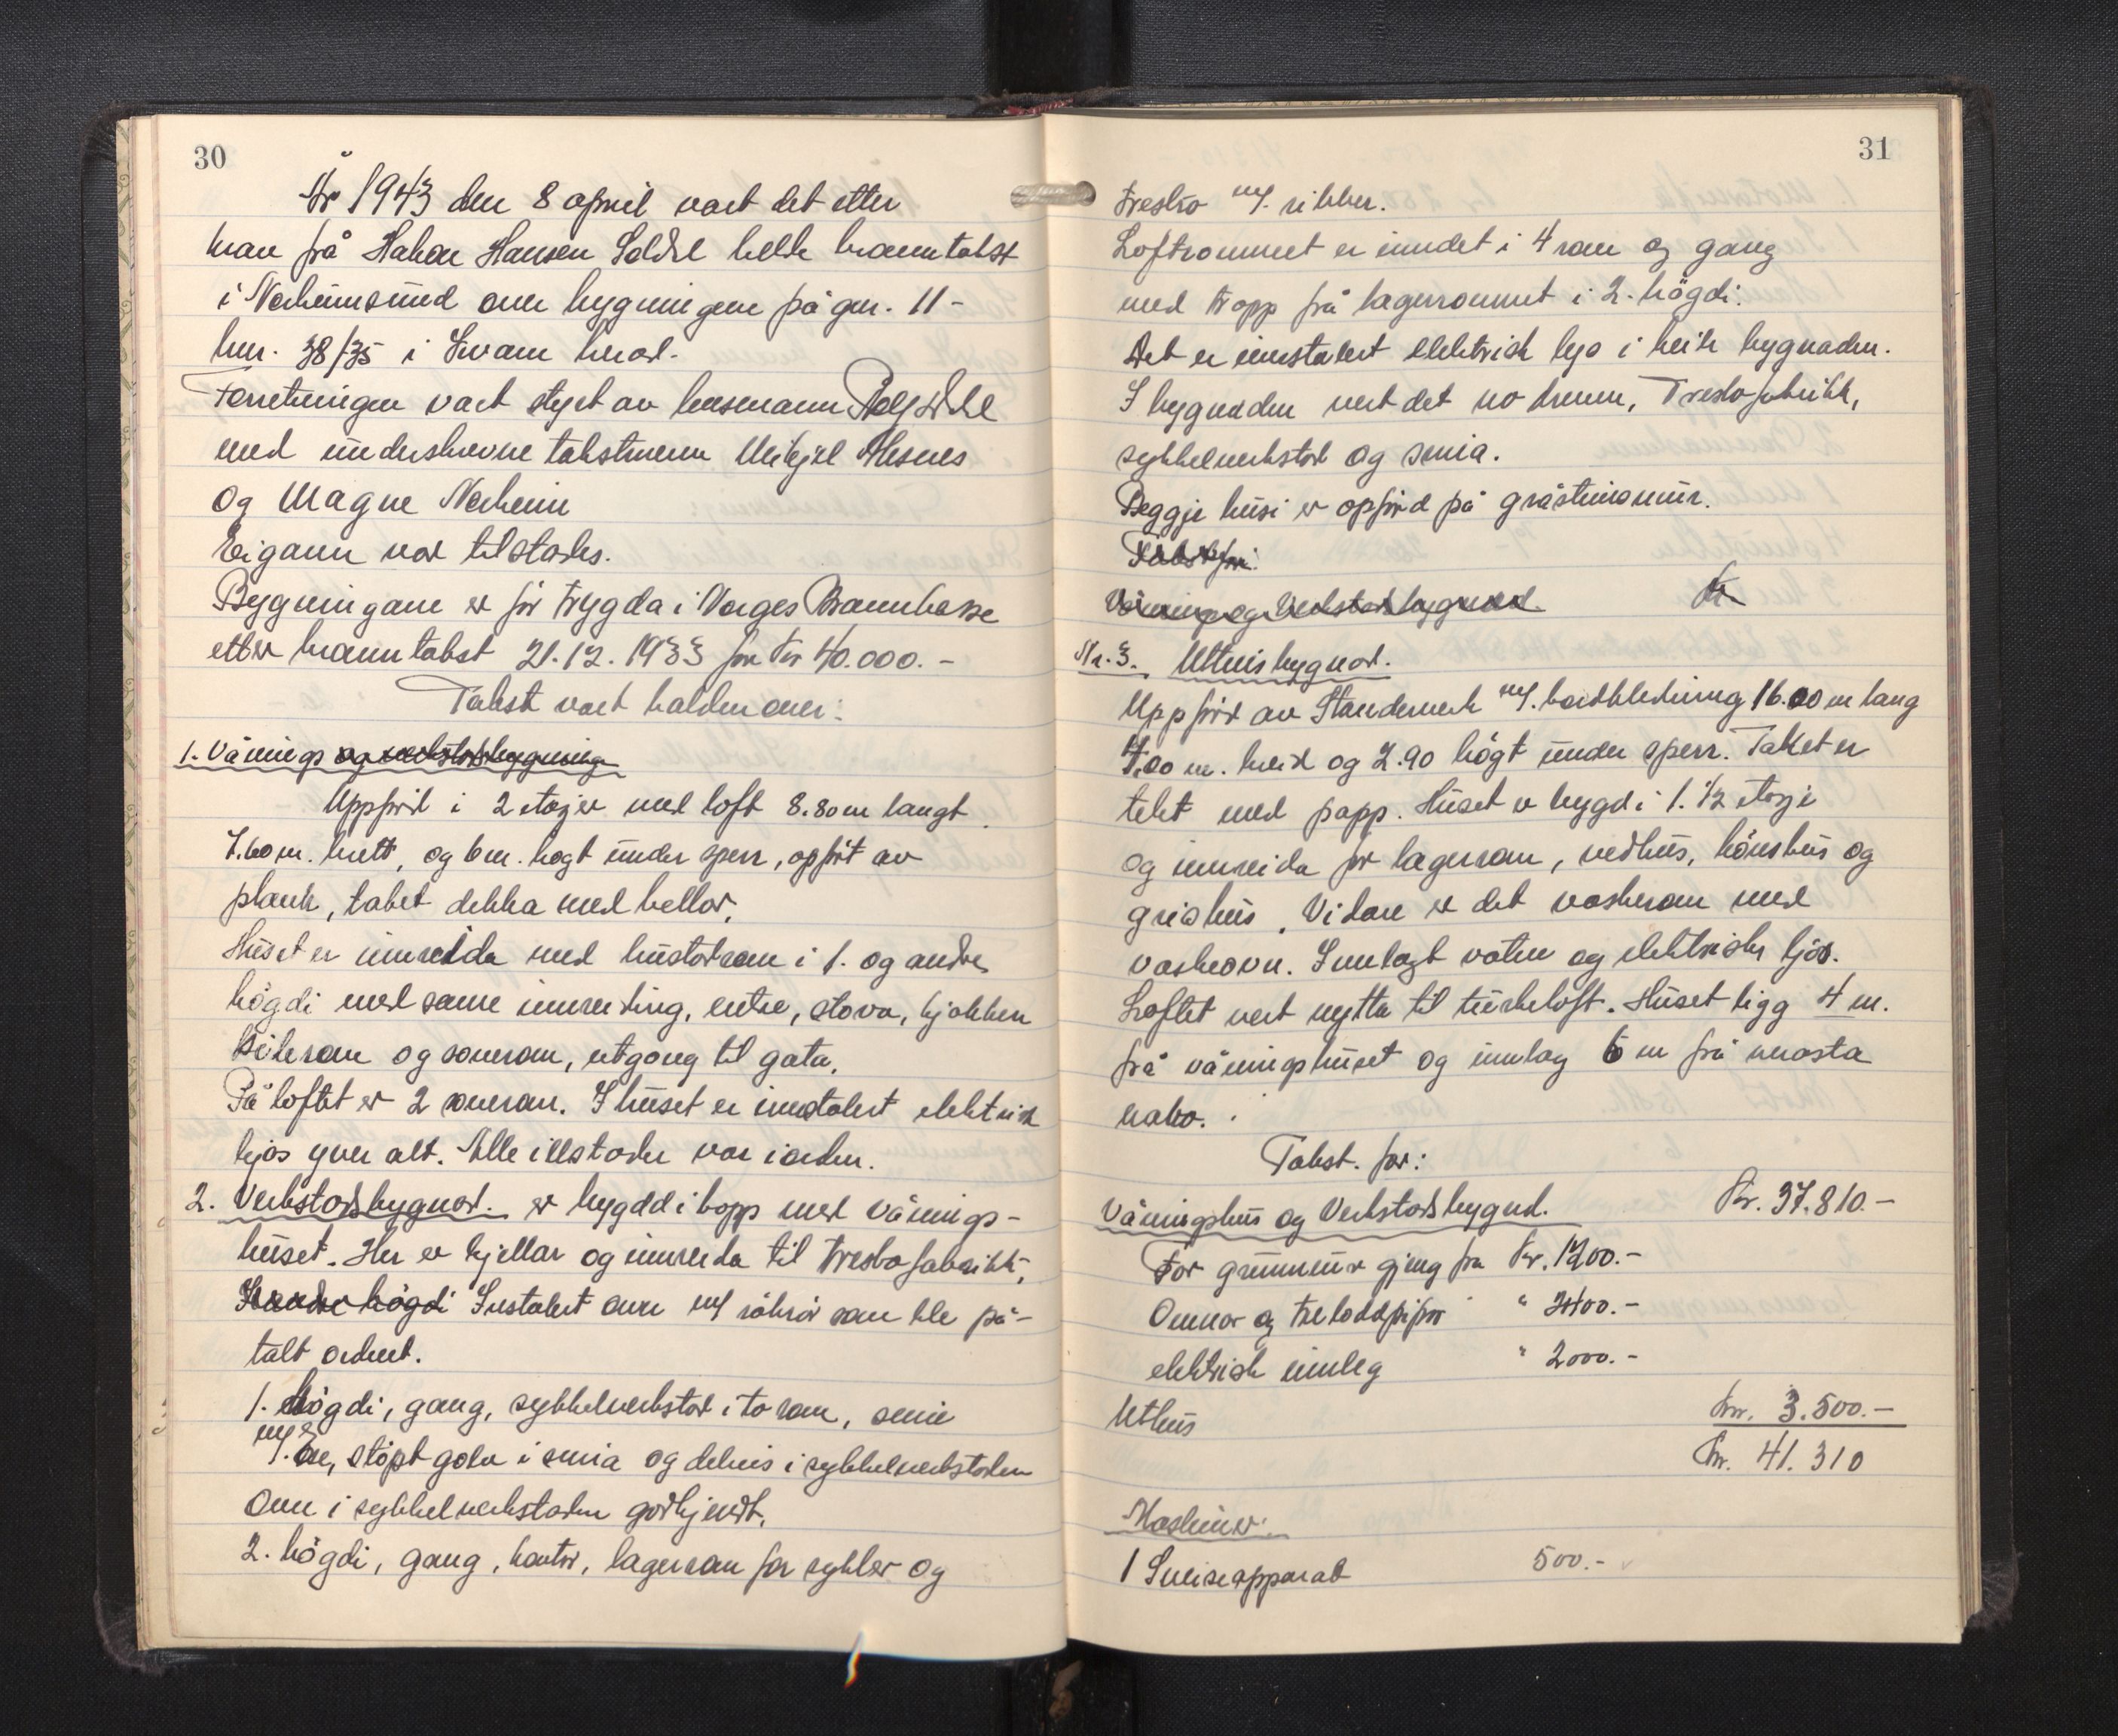 30
År 1943 den 8 april vart det etter
krav frå Håkon Hansen Soldal helde branntakst
i Norheimsund over bygningene på gnr. 11 -
bnr. 38/35 i Kvam herad.
Forretningen vart styrt av lensmann
med underskrevne takstmenn Meikjel Alsnes
og Magne Norheim
Eigaren var tilstades.
Bygningane er för trygda i Norges Brannkasse
etter branntakst 21.12.1933 for Kr 40.000.-
Takst vart halden over:
1. Vånings og verkstadsbygning
Uppförd i 2 etasjer med loft 8.80 m langt
7.60 m. bredt, og 6 m. högt under sperr, opfört av
plank, taket dekka med hellor.
Huset er innreida med hustadrom i 1. og andre
högdi med same innreding, entre, stova, kjökken
Bikerom og soverom, utgong til gata.
På loftet er 2 soverom. I huset er innstalert elektrisk
ljos yver alt. Alle illstader var i orden.
2. Verkstadsbygnad. er bygdd i hopp med vånings-
huset. Her er kjellar og innreida til treskofabrikk,
I andre högdi Instalert omn m/ rökrör som ble på-
talt ordnet.
1. högdi, gang, sykkelverkstad i to rom, smie
m/ Ese, stöpt golv i smia og delvis i sykkelverkstaden
Omn i sykkelverkstaden godkjendt.
2. högdi, gang, kontor, lagerrom for sykler og
31
tresko m/. sikker.
Loftrommet er inndelt i 4 rom og gang
med tropp frå lagerrommet i 2. högdi.
Det er innstalert elektrisk lys i heile bygnaden.
I bygnaden vert det no dreven, Treskofabrikk,
sykkelverkstad og smia.
Beggje husi er opförd på gråsteinsmur.
Takst for:
Vånings og Verkstadsbygnad. Kr
Nr. 3. Uthusbygnad.
Uppförd av Standerverk m/. bordkledning 16.00 m lang
7.00 m. breid og 2.90 högt under sperr. Taket er
tekt med papp. Huset er bygd i 1. 1/2 etasje
og innreida for lagerrom, vedhus, hönshus og
grishus. Vidare er det vaskerom med
vaskeovn. Innlagt vatn og elektriske ljos.
Loftet vert nytta til turkeloft. Huset ligg 4 m.
frå våningshuset og innlag 6 m frå nærasta
nabo.
Takst. for:
Våningshus og Verkstadsbygnd. Kr. 37.810.-
For grunnmur gjeng fra Kr. 1200.-
Omnar og tre loddpipor " 2400.-
elektrisk innleg " 2000.-
Uthus Kr. 3.500.-
Kr. 41.310
Maskiner:
1 Sveiseapparat 500.-